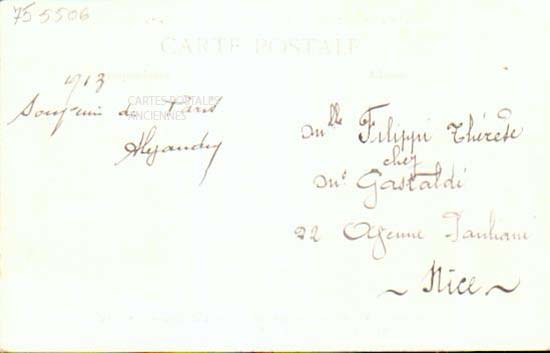 75 5506
CARTE POSTALE
1913
Souvenir de Paris
CARTES POSTALES
ANCIENNES
Alexandre
Mlle Filippi Thérèse
chez
Mr Gastaldi
22 Avenue
Nice